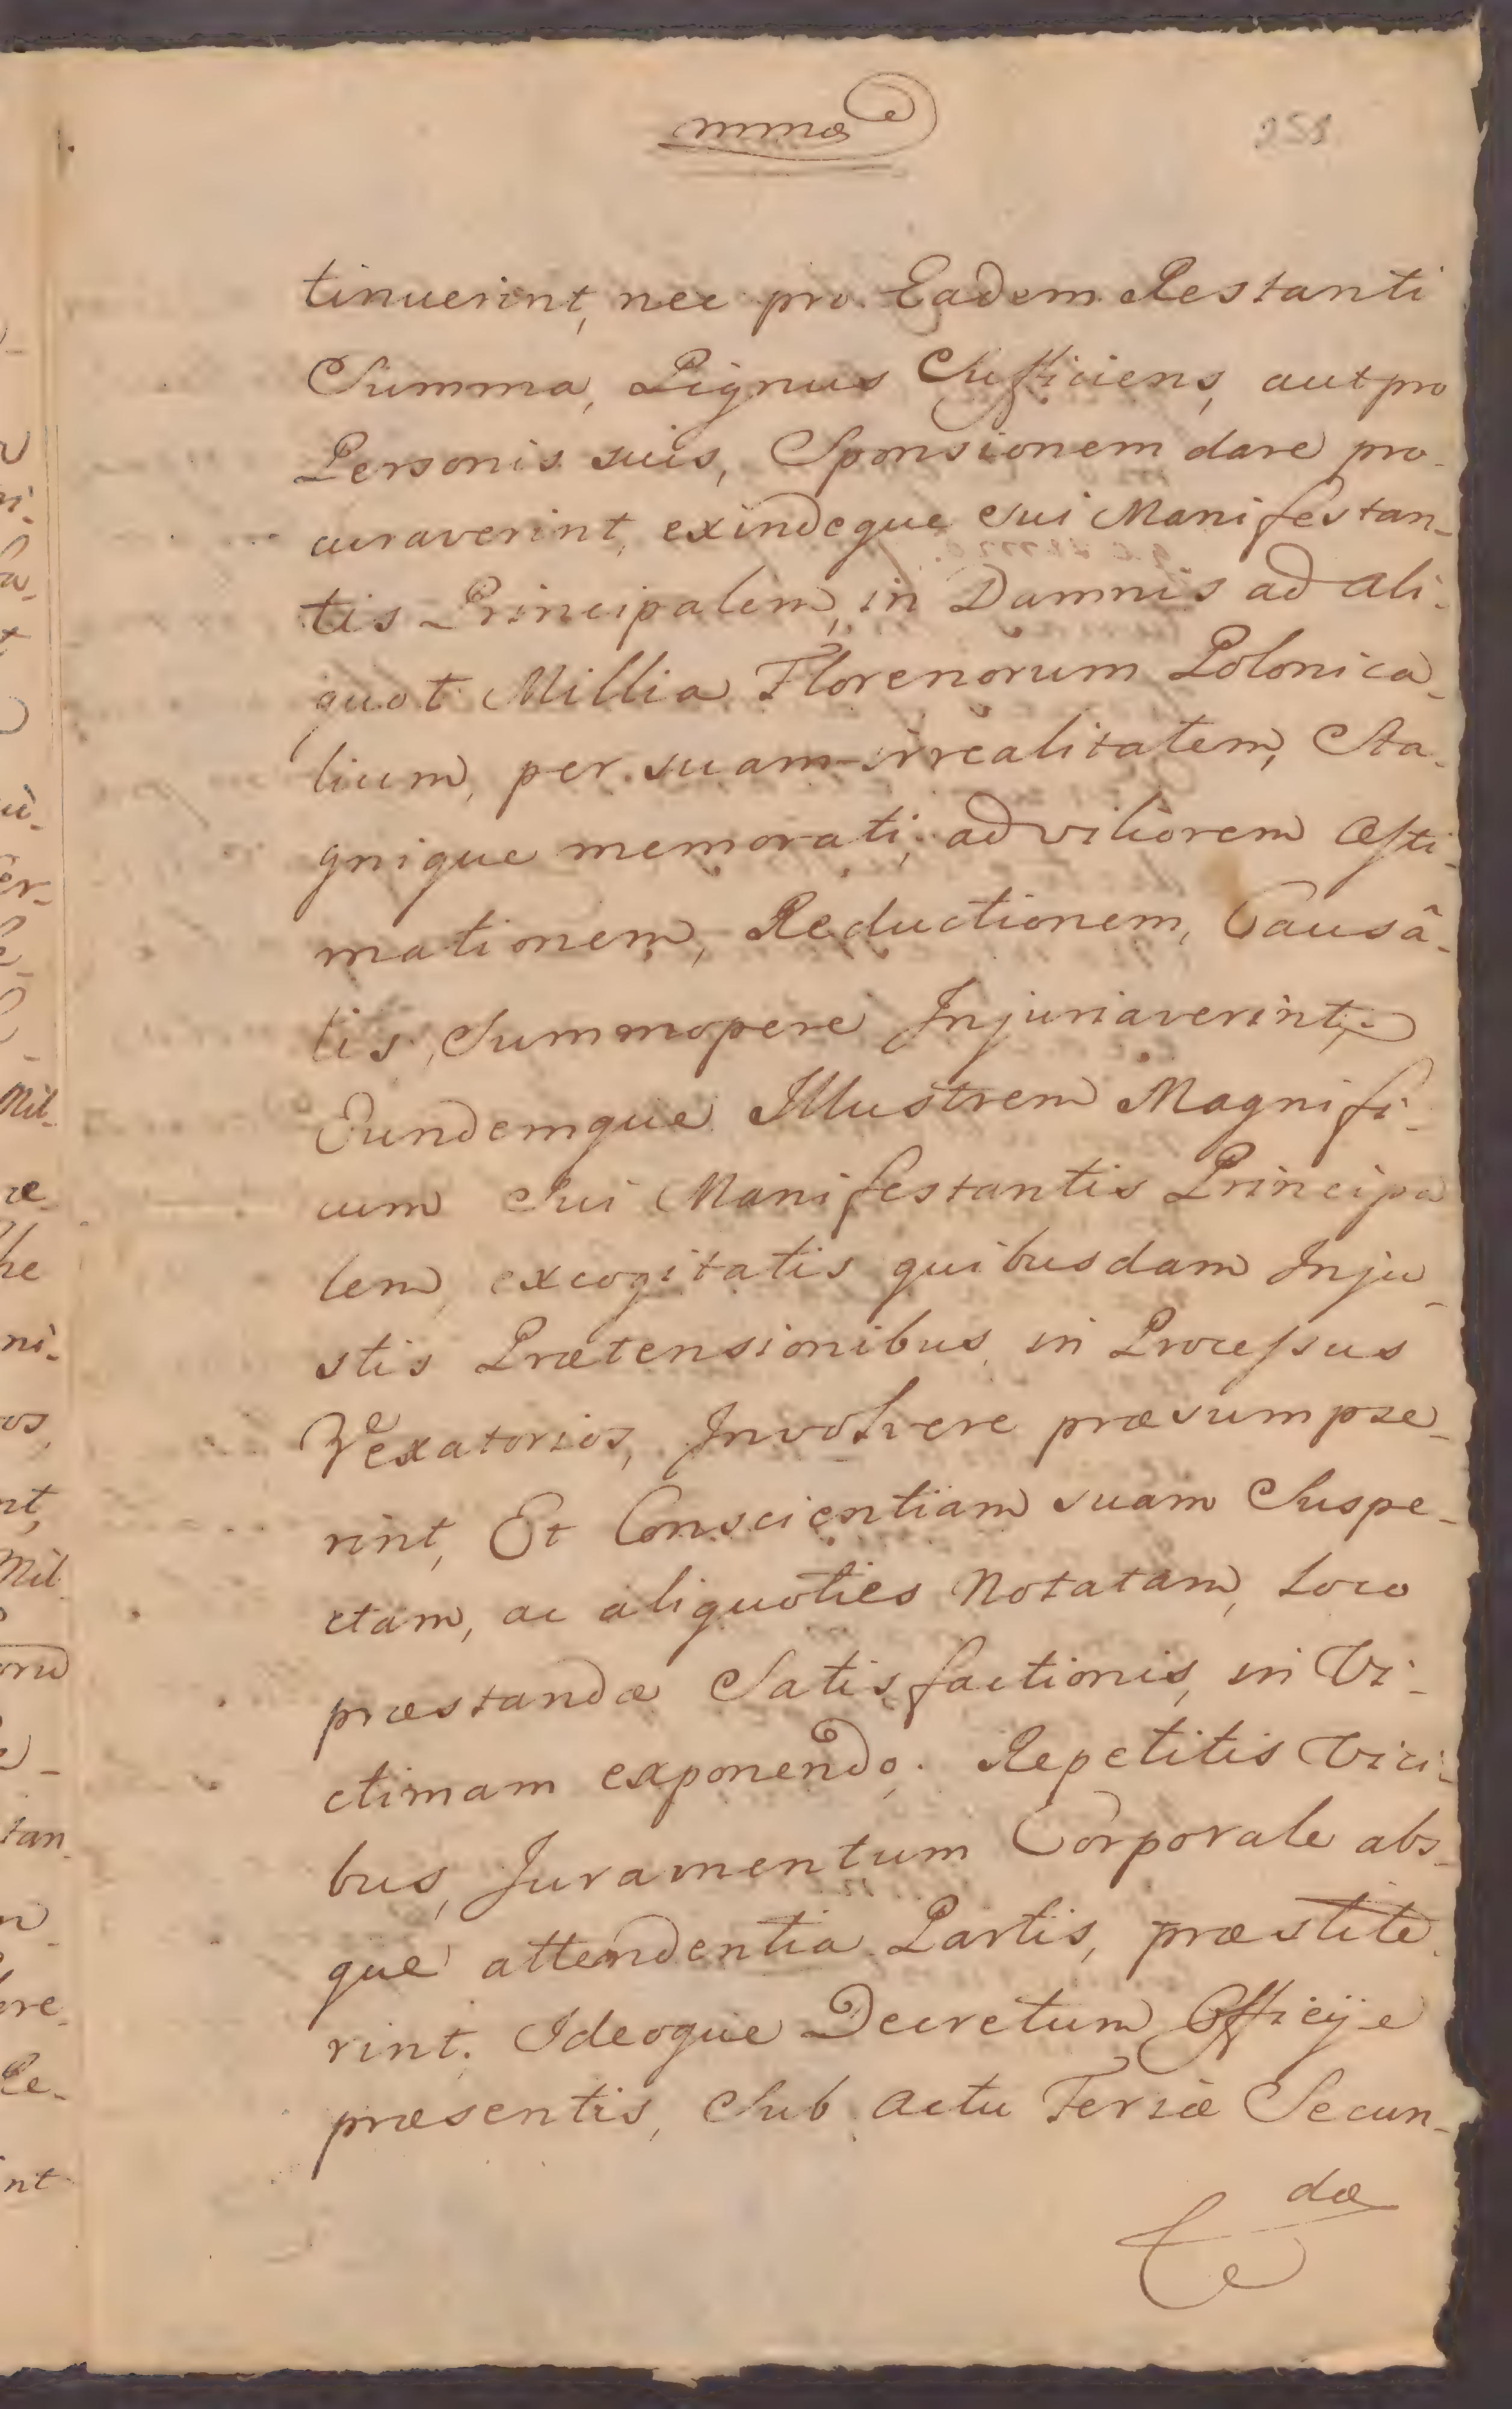 mma
258
tinuerint, nec pro Eadem Restanti
Summa, Pignus Sufficiens, aut pro
Personis suis, Sponsionem dare pro-
curaverint, exindeque sui Manifestan-
tis Principalem, in Damnis ad ali-
quot Millia Florenorum Polonica-
lium, per suam irrealitatem, Sta-
gnique memorati, ad viliorem Æsti-
mationem, Reductionem, Causâ-
lis, Summopere Injuriaverint,
Eundemque Illustrem Magnifi-
cum Sui Manifestantis Principa
lem, excogitatis quibusdam Inju-
stis Prætensionibus, in Processus
Vexatorios, Involvere præsumpse-
rint, Et Conscientiam suam Suspe-
ctam, ac aliquoties Notatam, Loco
præstandæ Satisfactionis, in Vi-
ctimam exponendo. Repetitis Vici-
bus, Juramentum Corporale abs-
que attendentia Partis, præstite-
rint. Ideoque Decretum Officij e
præsentis, Sub Actu Feriæ Secun-
dæ